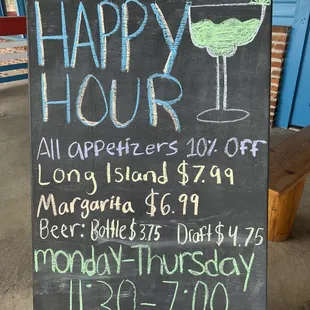 HAPPY
HOUR
All appetizers 10% Off
Long Island $7.99
Margarita $6.99
Beer: Bottle $3.75 Draft $4.75
monday-Thursday
11:30-7:00